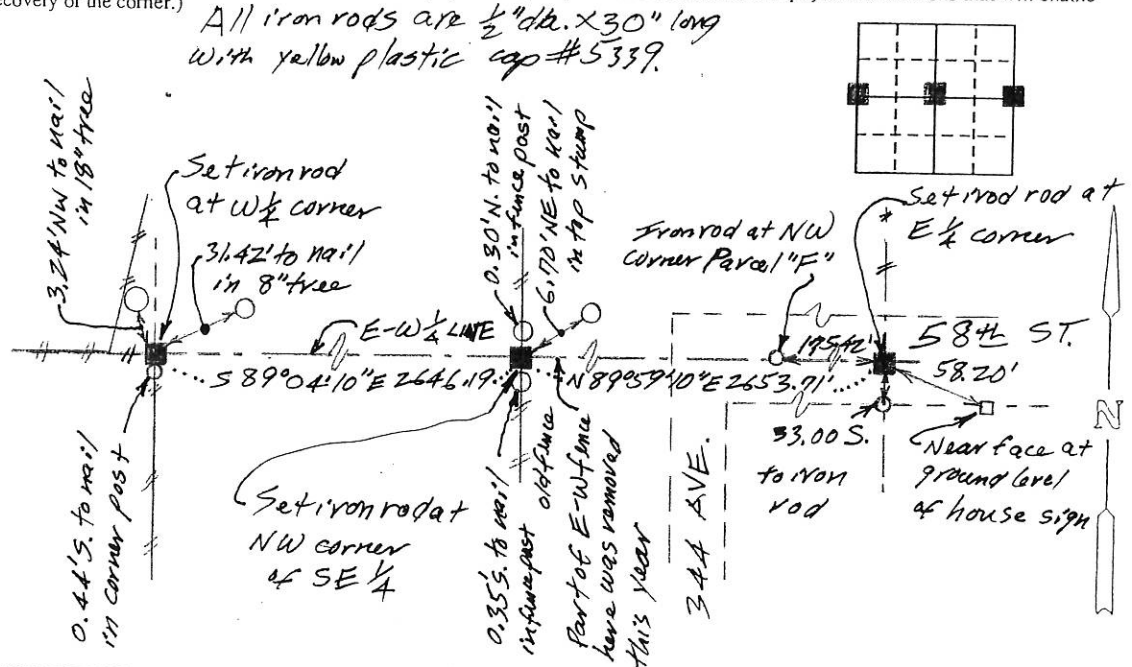 ecovery of the corner.)
All iron rods are 1/2" dia. X 30" long
with yellow plastic cap #5339.
3.24' NW to nail
in 18" tree
Set iron rod
at W 1/4 corner
31.42' to nail
in 8" tree
0.30' N. to nail
in fence post
6.70' NE to nail
in top stump
Iron rod at NW
corner Parcel "F"
Set irod rod at
E 1/4 corner
E-W 1/4 LINE
58th ST.
58.20'
S 89°04'10" E 2646.19
N 89°59'10" E 2653.71'
33.00 S.
to iron
rod
Near face at
ground level
of house sign
N
0.44' S. to nail
in corner post
Set iron rod at
NW corner
of SE 1/4
0.35' S. to nail
in fence post
old fence
Part of E-W fence
here was removed
this year
344 AVE.